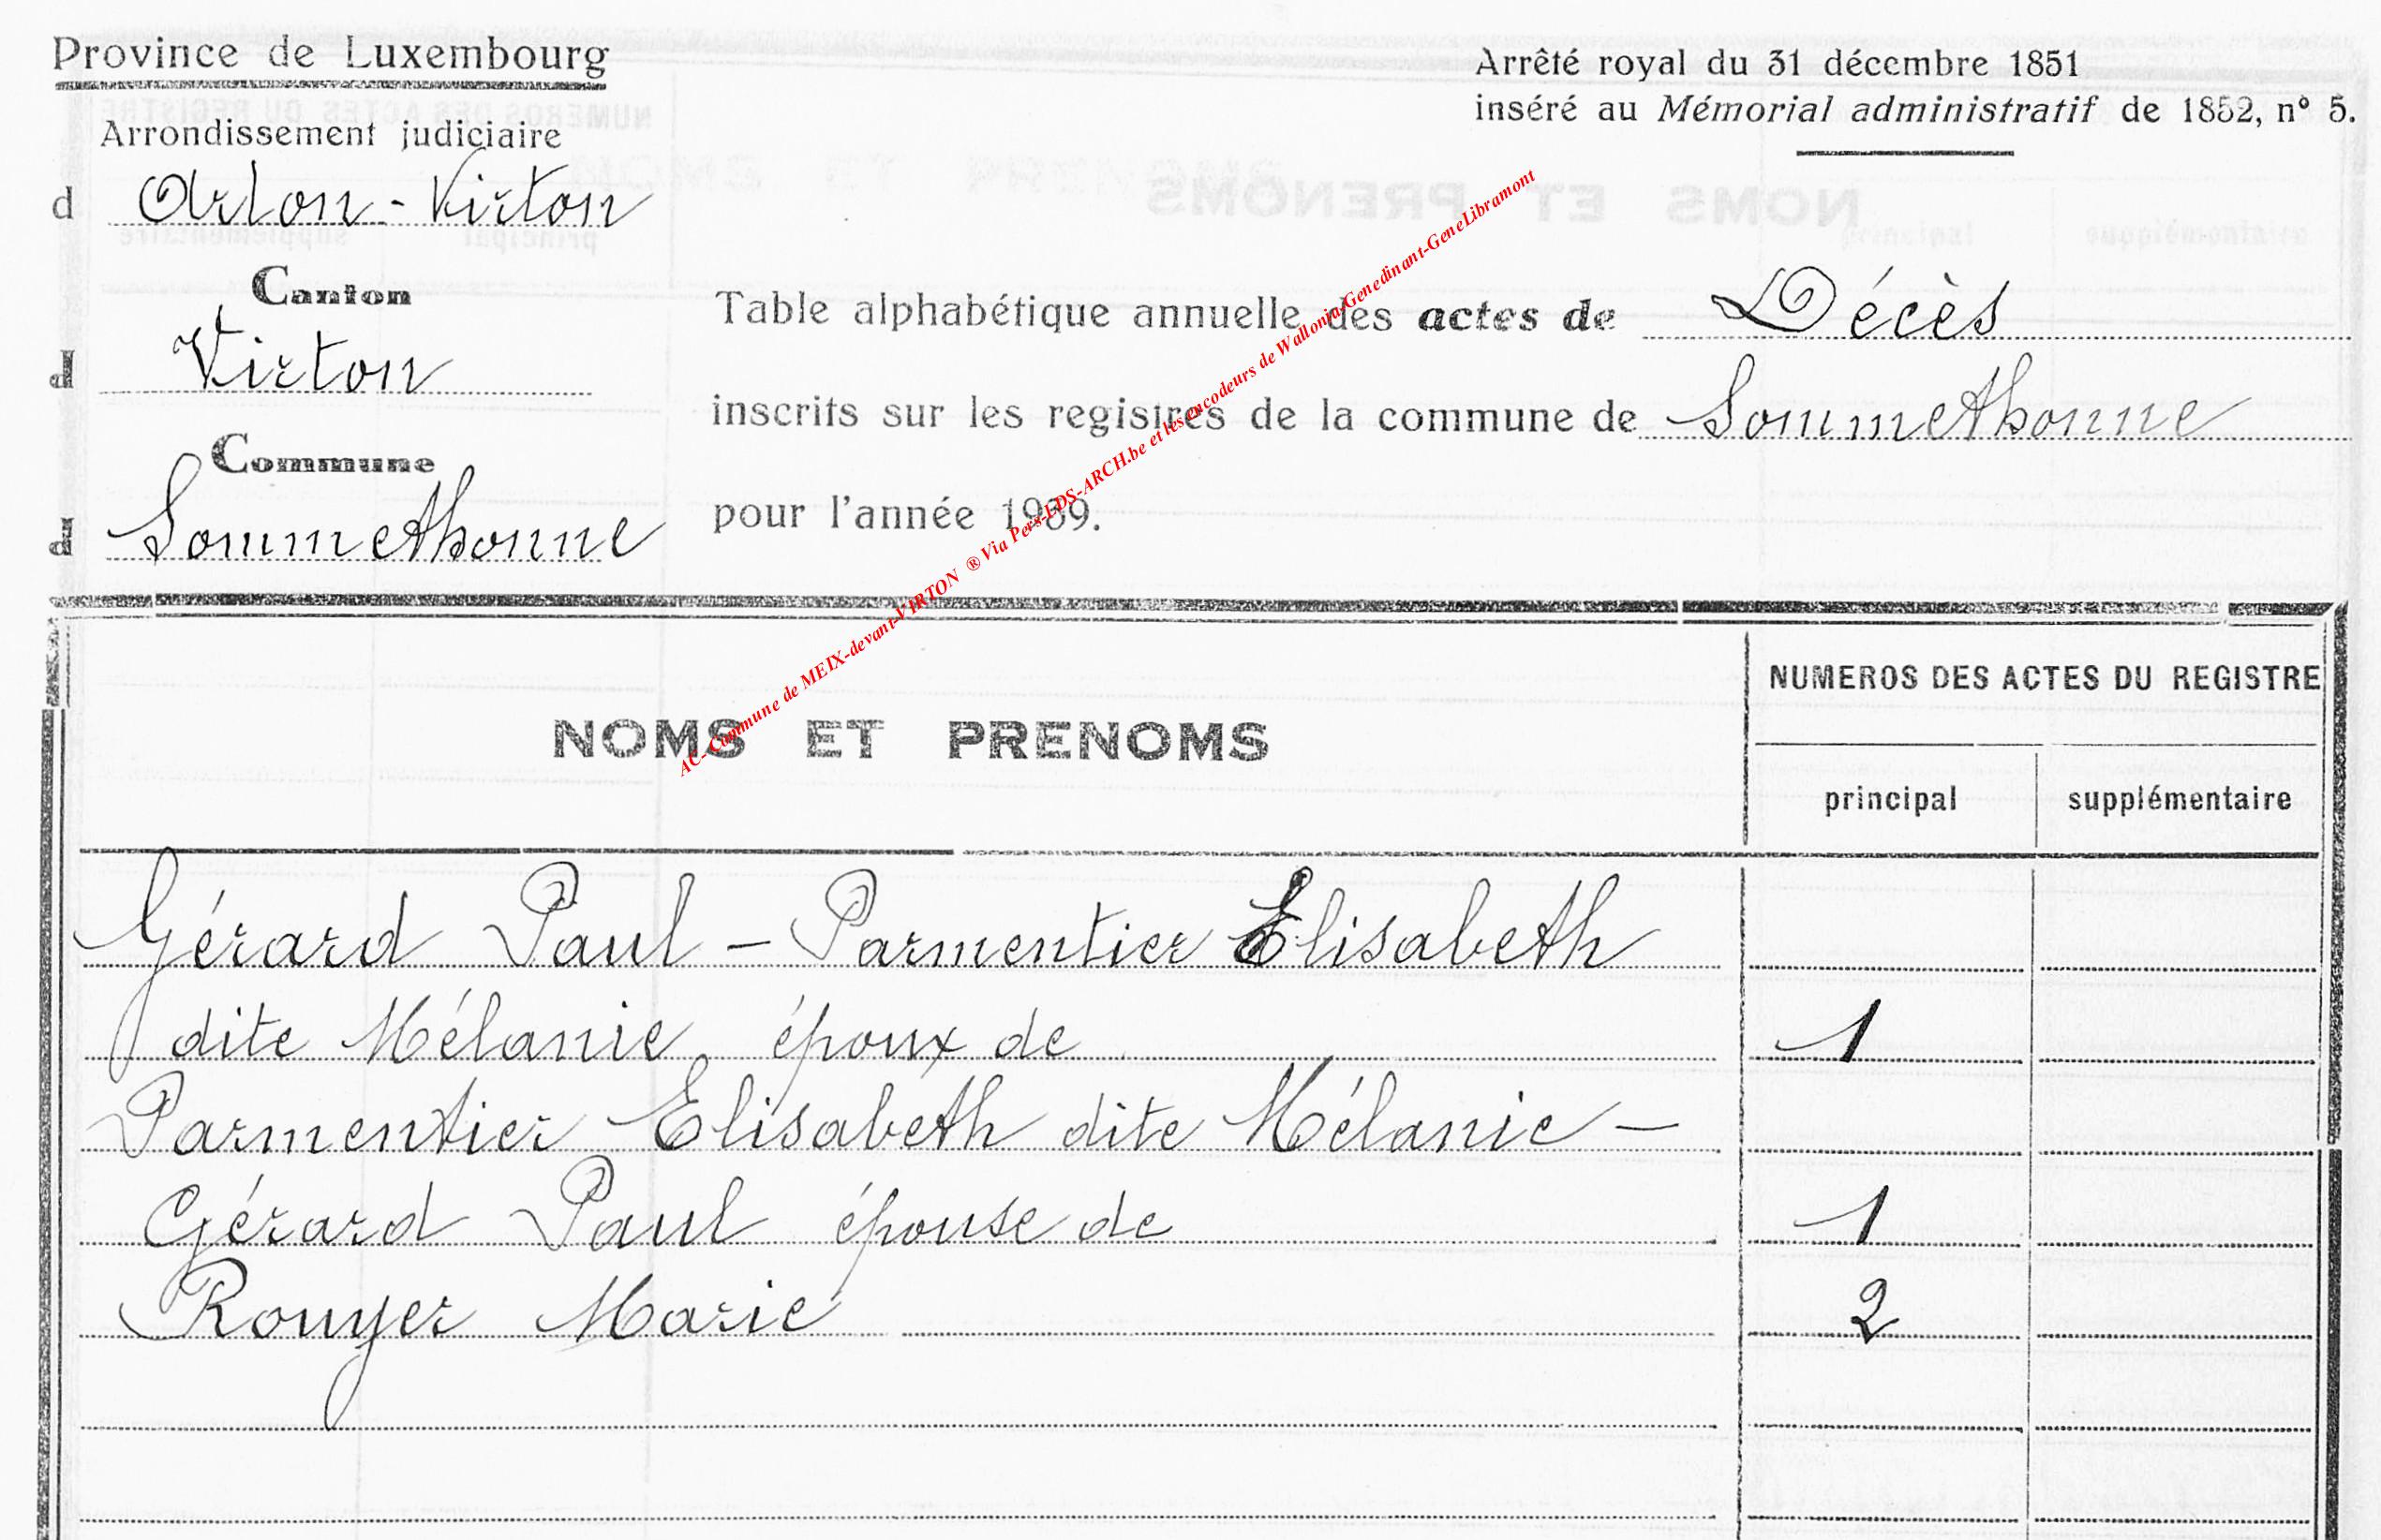 Province de Luxembourg
Arrondissement judiciaire
d Arlon - Virton
Canton
d Virton
Commune
d Sommethonne
Arrêté royal du 31 décembre 1851
inséré au Mémorial administratif de 1852, n° 5.
Table alphabétique annuelle des actes de Décès
inscrits sur les registres de la commune de Sommethonne
pour l'année 1969.
AC-Commune de MEIX-devant-VIRTON ® Via Pers-EDS-ARCH.be et les encodeurs de Wallonia-Genedinant-GeneLibramont
NOMS ET PRENOMS
NUMEROS DES ACTES DU REGISTRE
principal supplémentaire
Gérard Paul - Parmentier Elisabeth
dite Mélanie époux de 1
Parmentier Elisabeth dite Mélanie -
Gérard Paul épouse de 1
Rouyer Marie 2